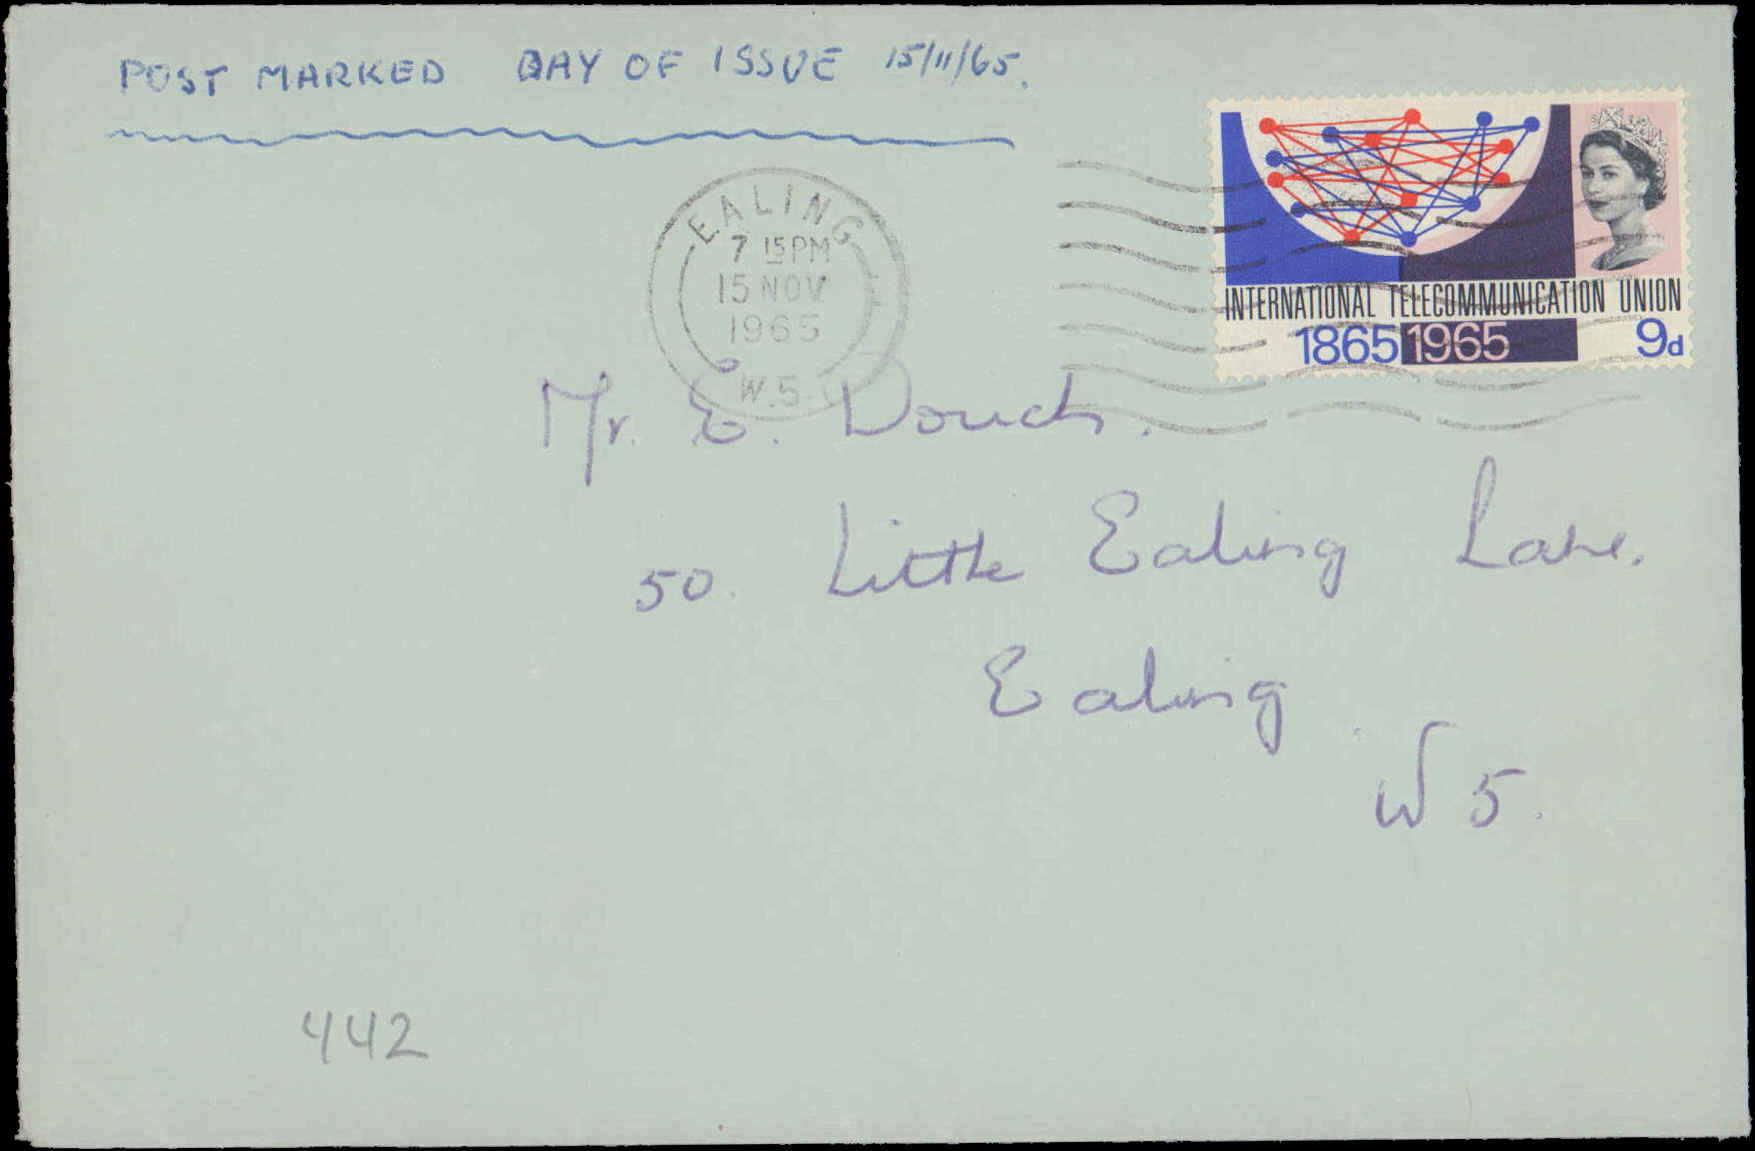 POST MARKED DAY OF ISSUE 15/11/65.
EALING
7 15 PM
15 NOV
1965
W.5.
INTERNATIONAL TELECOMMUNICATION UNION
1865 1965 9d
Mr. E. Douch.
50. Little Ealing Lane.
Ealing
W 5.
442